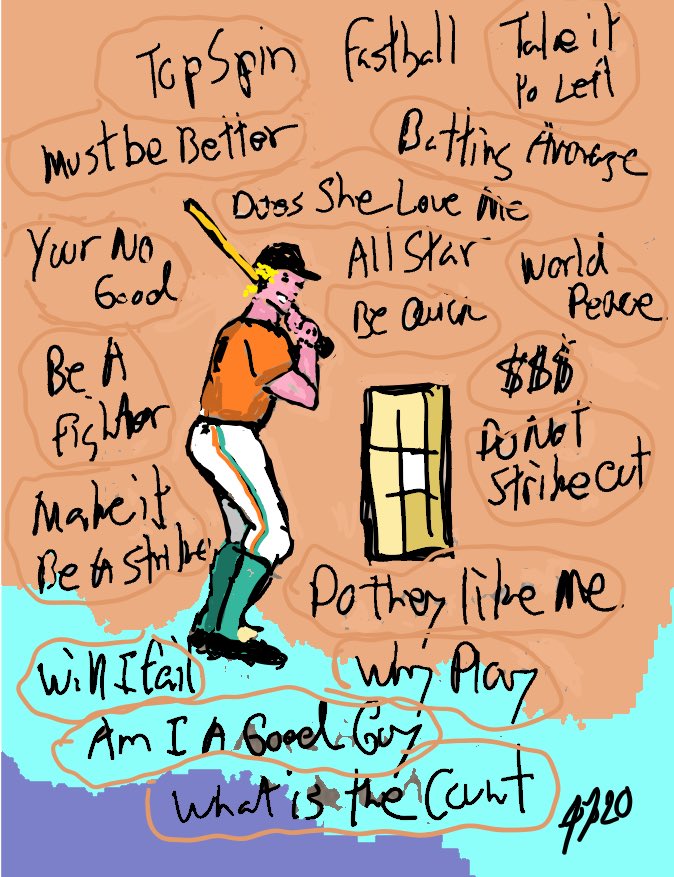 Top Spin
Fastball
Take it
to Left
Must be Better
Batting Average
Does She Love me
Your No
Good
All Star
World
Peace
Be Quick
Be A
Fighter
$$$
Do Not
Strike out
Make it
Be a strike
Do they like me
Will I fail
Why Play
Am I A Good Guy
What is the Count